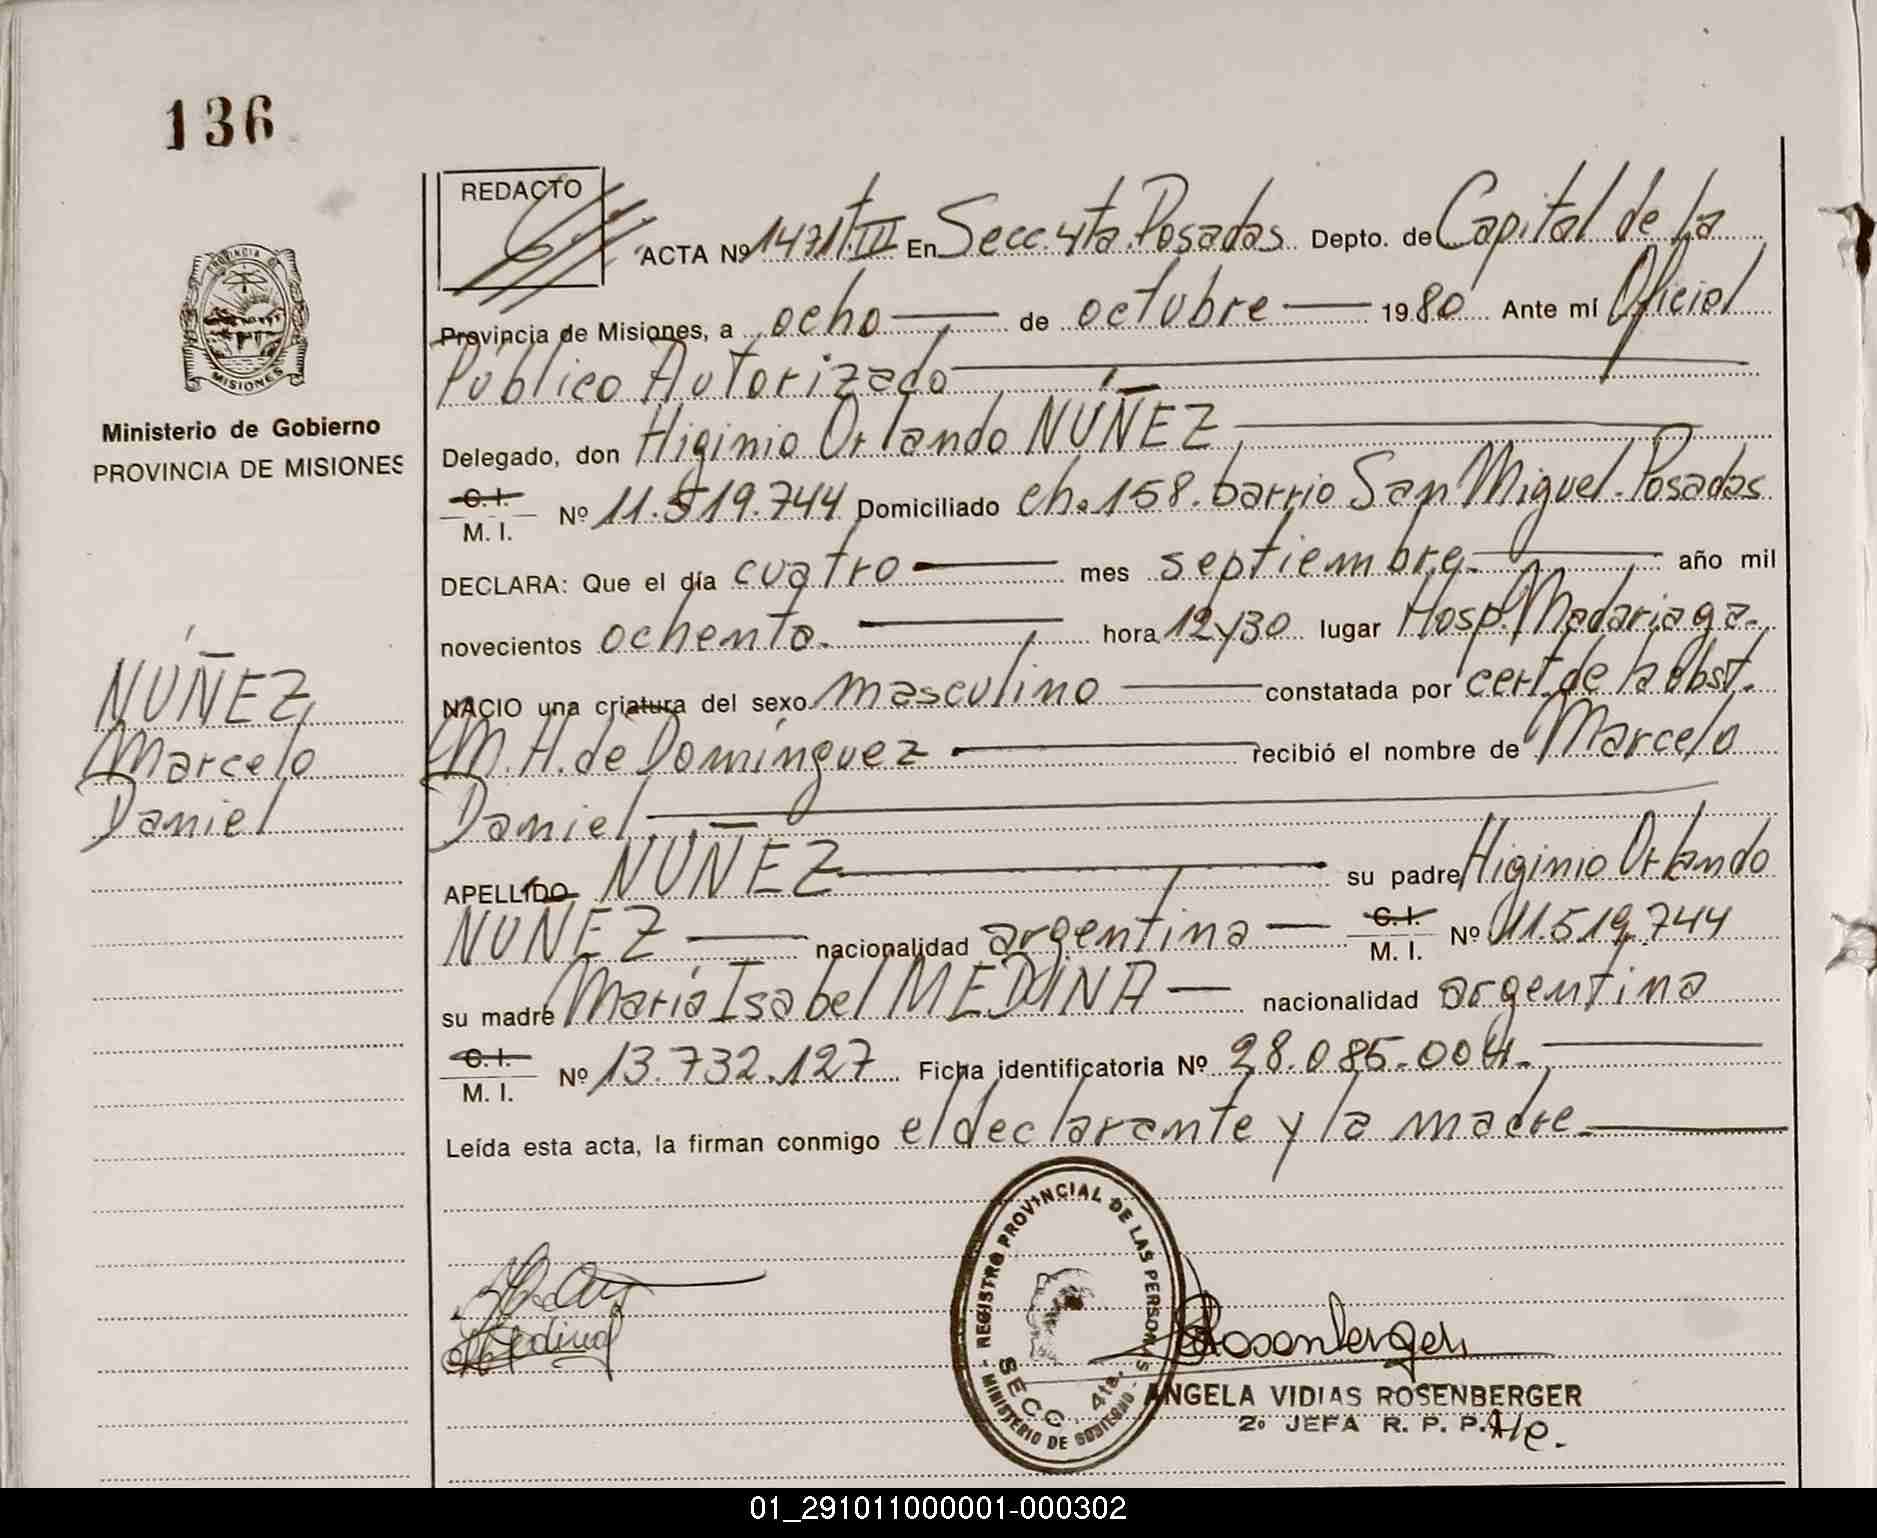 136
REDACTO
ACTA Nº 1471 T.III En Secc. 4ta. Posadas Depto. de Capital de la
Provincia de Misiones, a ocho de octubre 1980 Ante mí Oficial
Público Autorizado
Delegado, don Higinio Orlando NÚÑEZ
C. I.
M. I. Nº 11.519.744 Domiciliado ch. 158. barrio San Miguel. Posadas
DECLARA: Que el día cuatro mes septiembre. año mil
novecientos ochenta. hora 12y30 lugar Hosp. Madariaga.
NACIO una criatura del sexo masculino constatada por cert. de la Obst.
M. H. de Domínguez recibió el nombre de Marcelo
Daniel
APELLIDO NUÑEZ su padre Higinio Orlando
NÚÑEZ nacionalidad argentina C. I.
M. I. Nº 11.519.744
su madre María Isabel MEDINA nacionalidad argentina
C. I.
M. I. Nº 13.732.127 Ficha identificatoria Nº 28.085.004.
Leída esta acta, la firman conmigo el declarante y la madre.
PROVINCIA DE
MISIONES
Ministerio de Gobierno
PROVINCIA DE MISIONES
NÚÑEZ
Marcelo
Daniel
REGISTRO PROVINCIAL DE LAS PERSONAS
SECC. 4ta.
MINISTERIO DE GOBIERNO
Rosenberger
ANGELA VIDIAS ROSENBERGER
2º JEFA R. P. P.
01_291011000001-000302